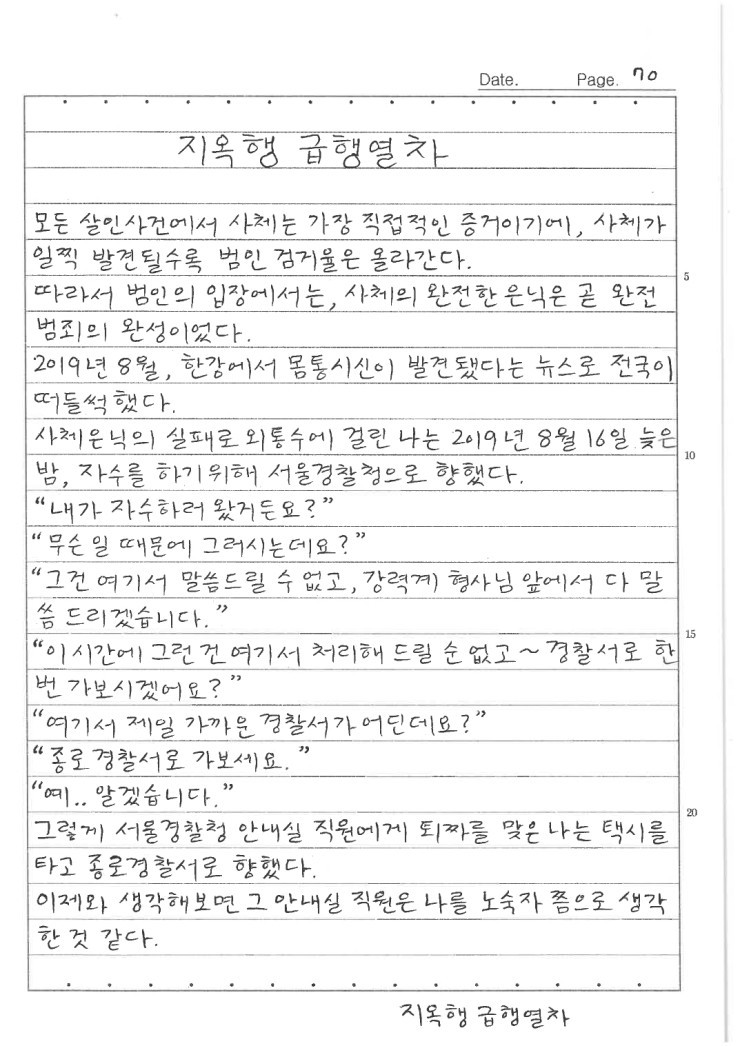 Date. Page. 70
지옥행 급행열차
모든 살인사건에서 사체는 가장 직접적인 증거이기에, 사체가
일찍 발견될수록 범인 검거율은 올라간다.
5
따라서 범인의 입장에서는, 사체의 완전한 은닉은 곧 완전
범죄의 완성이었다.
2019년 8월, 한강에서 몸통시신이 발견됐다는 뉴스로 전국이
떠들썩했다.
사체은닉의 실패로 외통수에 걸린 나는 2019년 8월 16일 늦은
10
밤, 자수를 하기위해 서울경찰청으로 향했다.
“내가 자수하러 왔거든요?”
“무슨 일 때문에 그러시는데요?”
“그건 여기서 말씀드릴 수 없고, 강력계 형사님 앞에서 다 말
씀 드리겠습니다.”
15
“이 시간에 그런 건 여기서 처리해 드릴 순 없고~ 경찰서로 한
번 가보시겠어요?”
“여기서 제일 가까운 경찰서가 어딘데요?”
“종로경찰서로 가보세요.”
“예.. 알겠습니다.”
20
그렇게 서울경찰청 안내실 직원에게 퇴짜를 맞은 나는 택시를
타고 종로경찰서로 향했다.
이제와 생각해보면 그 안내실 직원은 나를 노숙자 쯤으로 생각
한 것 같다.
지옥행 급행열차